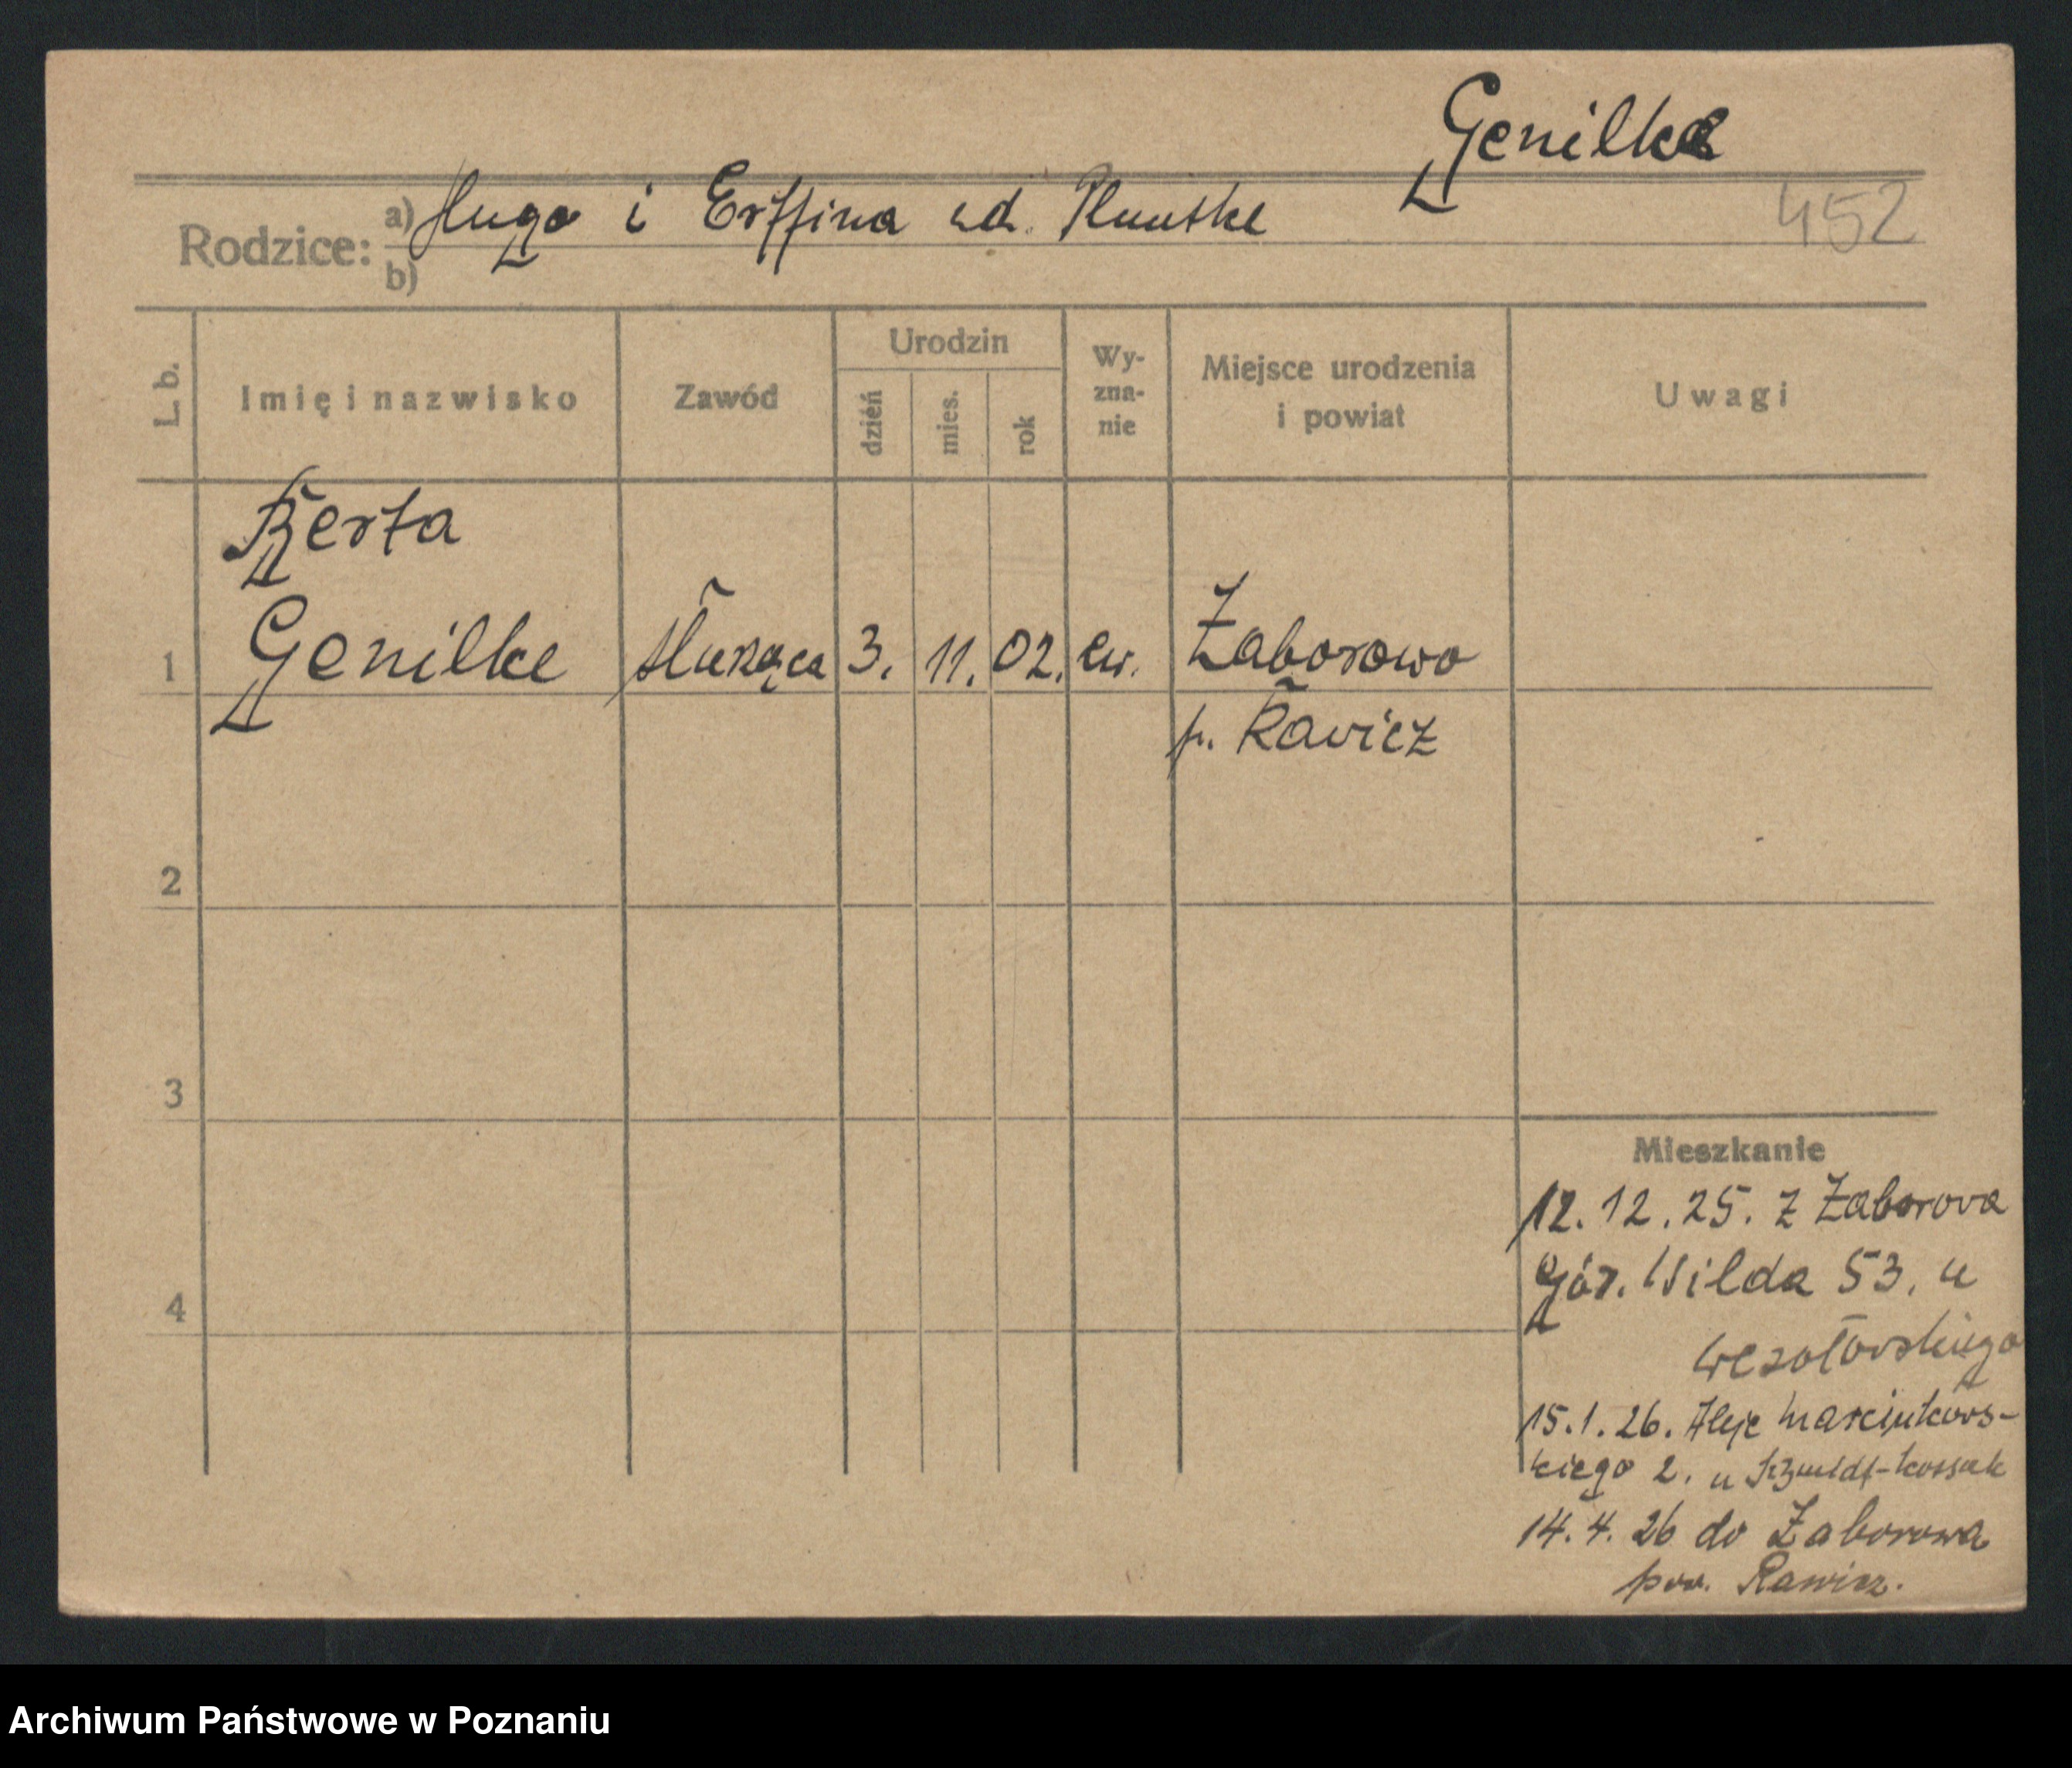 Genilke
452
Rodzice: a) Hugo i Erffina zd. Pluutke
b)
L. b.
Imię i nazwisko
Zawód
Urodzin
dzień
mies.
rok
Wy-
zna-
nie
Miejsce urodzenia
i powiat
Uwagi
Berta
1 Genilke służąca 3. 11. 02. ew. Zaborowo
p. Rawicz
2
3
4
Mieszkanie
12. 12. 25. z Zaborowa
Gór. Wilda 53. u
Wesołowskiego
15. 1. 26. Aleje Marcinkows-
kiego 2. u
14. 4. 26 do Zaborowa
pow. Rawicz.
Archiwum Państwowe w Poznaniu